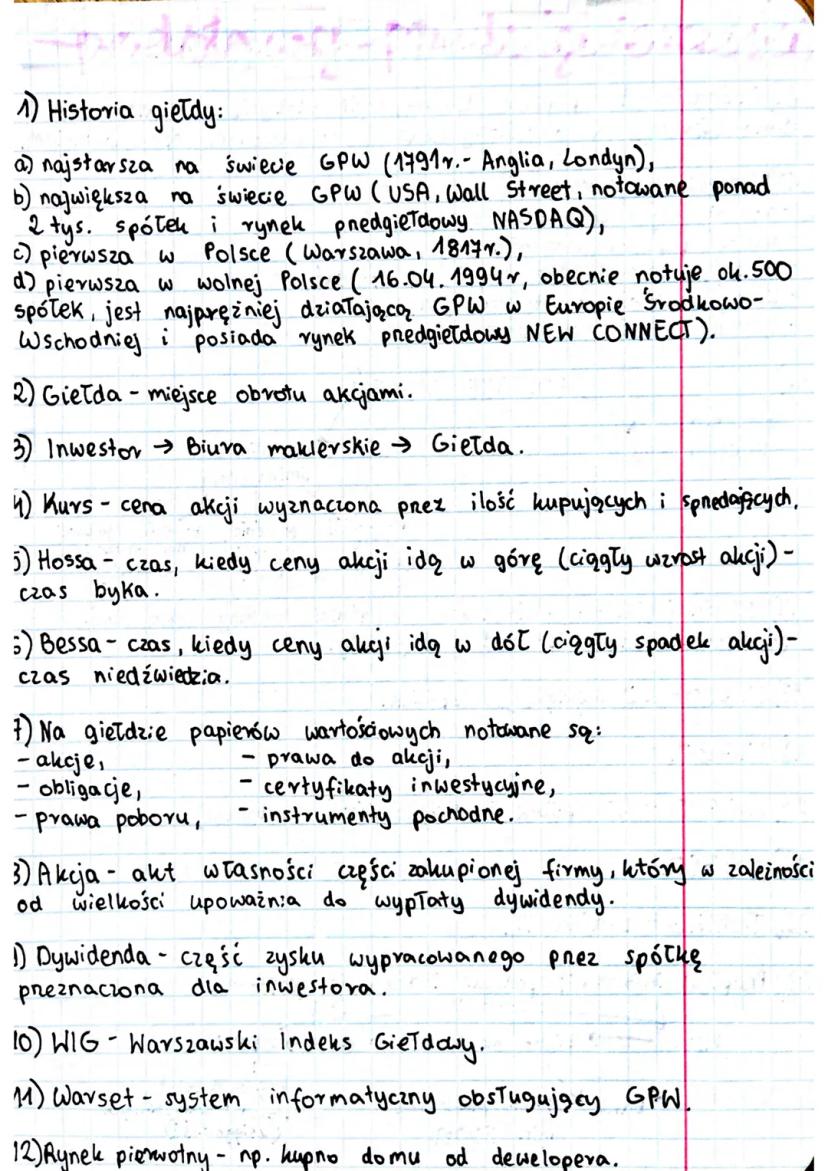 1) Historia giełdy:
a) najstarsza na świecie GPW (1791r.- Anglia, Londyn),
b) największa na świecie GPW (USA, Wall Street, notowane ponad
2 tys. spółek i rynek przedgiełdowy NASDAQ),
c) pierwsza w Polsce (Warszawa, 1817r.),
d) pierwsza w wolnej Polsce (16.04.1994r, obecnie notuje ok. 500
spółek, jest najprężniej działającą GPW w Europie Środkowo-
Wschodniej i posiada rynek przedgiełdowy NEW CONNECT).
2) Giełda - miejsce obrotu akcjami.
3) Inwestor → Biura maklerskie → Giełda.
4) Kurs - cena akcji wyznaczona przez ilość kupujących i sprzedających.
5) Hossa - czas, kiedy ceny akcji idą w górę (ciągły wzrost akcji) -
czas byka.
6) Bessa - czas, kiedy ceny akcji idą w dół (ciągły spadek akcji) -
czas niedźwiedzia.
7) Na giełdzie papierów wartościowych notowane są:
- akcje, - prawa do akcji,
- obligacje, - certyfikaty inwestycyjne,
- prawa poboru, - instrumenty pochodne.
8) Akcja - akt własności części zakupionej firmy, który w zależności
od wielkości upoważnia do wypłaty dywidendy.
) Dywidenda - część zysku wypracowanego przez spółkę
przeznaczona dla inwestora.
10) WIG - Warszawski Indeks Giełdowy.
11) Warset - system informatyczny obsługujący GPW.
12) Rynek pierwotny - np. kupno domu od dewelopera.